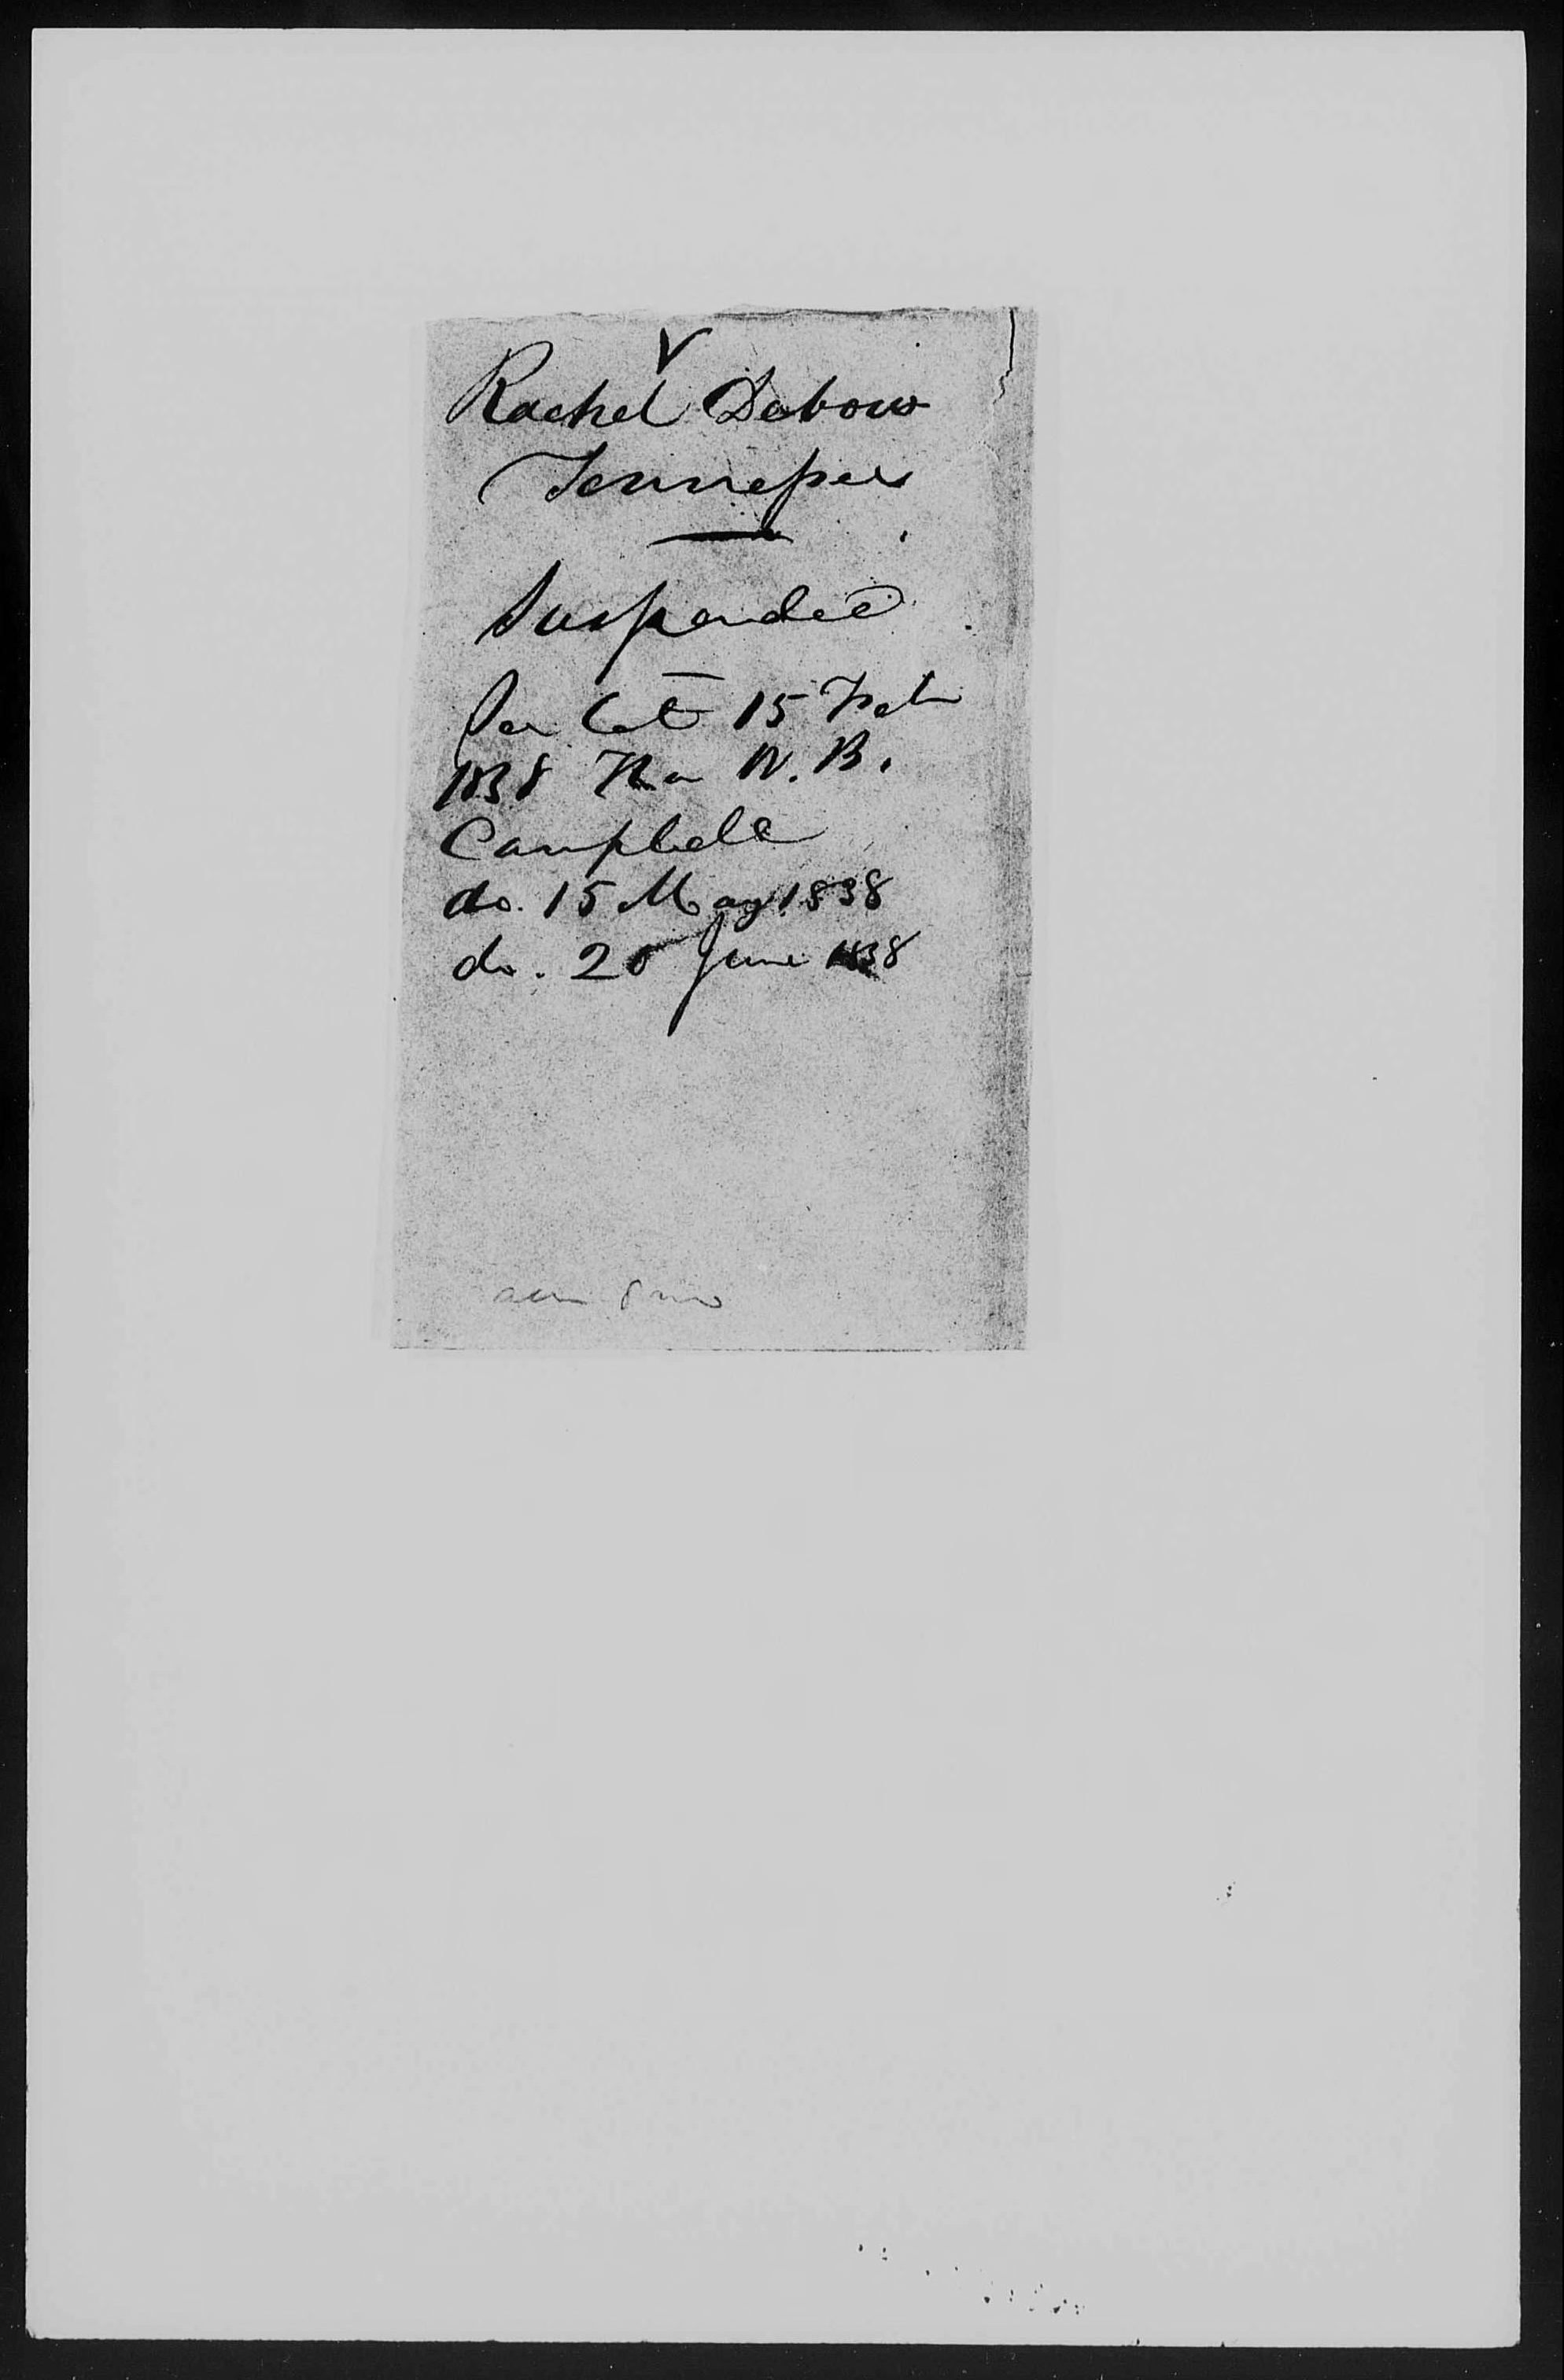 V
Rachel Debow
Tennessee
Suspended
See Let 15 Feb
1838 Hon W. B.
Campbell
do. 15 May 1838
do. 20 June 1838